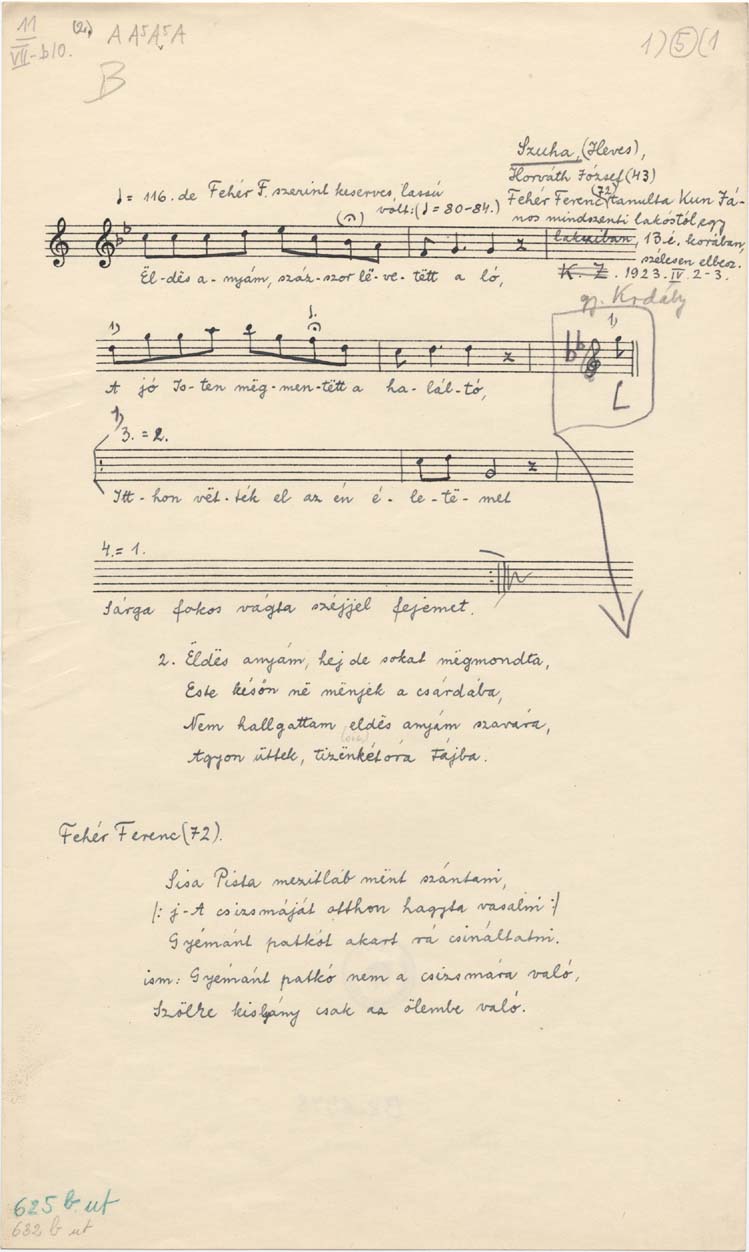 11
VII-b/0. (2.) A A⁵A⁵A
B
1) 5 (1
Szuha, (Heves),
Horváth József (43)
♩= 116. de Fehér F. szerint keserves, lassú
vólt: (♩= 80-84.)
Fehér Ferenc (72) tanulta Kun Já-
nos mindszenti lakóstól, egy
lakziban, 13 é. korában,
szélesen elbesz.
K. Z. 1923. IV. 2-3.
gy. Kodály
Ëldës a-nyám, száz-szor lë-ve-tëtt a ló,
1)
1)
A jó Is-ten mëg-men-tëtt a ha-lál-tó,
L
1)
3. = 2.
Itt-hon vët-ték el az én é-le-të-met
4. = 1.
Sárga fokos vágta széjjel fejemet.
2. Ëldës anyám, hej de sokat mëgmondta,
Este későn në mënjek a csárdába,
Nem hallgattam eldës anyám szavára,
Agyon üttek, tizënkétóra tájba.
Fehér Ferenc (72).
Sisa Pista mezitláb mënt szántani,
/: j-A csizsmáját otthon hagyta vasalni :/
Gyémánt patkót akart rá csináltatni.
ism: Gyémánt patkó nem a csizsmára való,
Szőke kislyány csak az ölembe való.
625 b ut
632 b ut